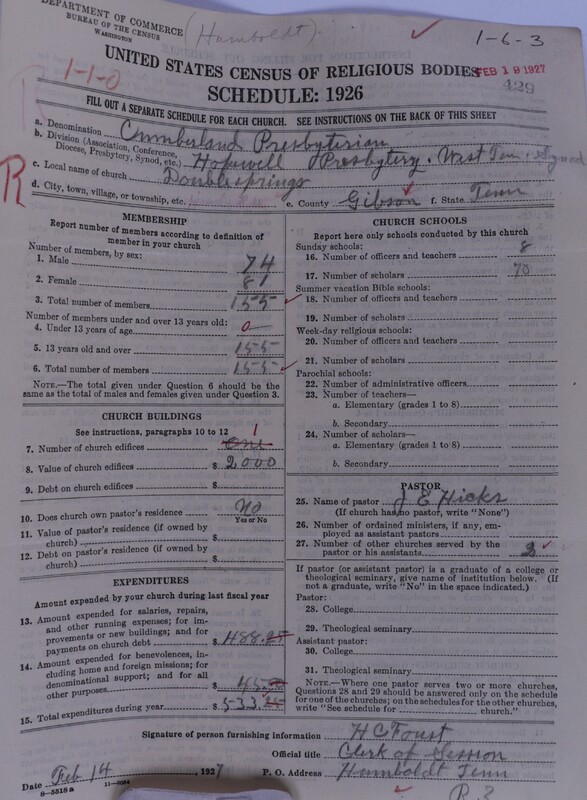 DEPARTMENT OF COMMERCE
BUREAU OF THE CENSUS
WASHINGTON
(Humboldt)
1-6-3
UNITED STATES CENSUS OF RELIGIOUS BODIES
FEB 19 1927
429
1-1-0
SCHEDULE: 1926
FILL OUT A SEPARATE SCHEDULE FOR EACH CHURCH. SEE INSTRUCTIONS ON THE BACK OF THIS SHEET
a. Denomination Cumberland Presbyterian
b. Division (Association, Conference, Diocese, Presbytery, Synod, etc.) Hopewell Presbytery. West Tenn. Synod
R
c. Local name of church Double springs
d. City, town, village, or township, etc. e. County Gibson f. State Tenn
MEMBERSHIP
Report number of members according to definition of member in your church
Number of members, by sex:
1. Male 74
2. Female 81
3. Total number of members 155
Number of members under and over 13 years old:
4. Under 13 years of age 0
5. 13 years old and over 155
6. Total number of members 155
NOTE.—The total given under Question 6 should be the same as the total of males and females given under Question 3.
CHURCH BUILDINGS
See instructions, paragraphs 10 to 12
7. Number of church edifices One 1
8. Value of church edifices $ 2000
9. Debt on church edifices $
10. Does church own pastor's residence No
Yes or No
11. Value of pastor's residence (if owned by church) $
12. Debt on pastor's residence (if owned by church) $
EXPENDITURES
Amount expended by your church during last fiscal year
13. Amount expended for salaries, repairs, and other running expenses; for improvements or new buildings; and for payments on church debt $ 488.25
14. Amount expended for benevolences, including home and foreign missions; for denominational support; and for all other purposes $ 45.00
15. Total expenditures during year $ 533.25
CHURCH SCHOOLS
Report here only schools conducted by this church
Sunday schools:
16. Number of officers and teachers 8
17. Number of scholars 70
Summer vacation Bible schools:
18. Number of officers and teachers
19. Number of scholars
Week-day religious schools:
20. Number of officers and teachers
21. Number of scholars
Parochial schools:
22. Number of administrative officers
23. Number of teachers—
a. Elementary (grades 1 to 8)
b. Secondary
24. Number of scholars—
a. Elementary (grades 1 to 8)
b. Secondary
PASTOR
25. Name of pastor J E Hicks
(If church has no pastor, write "None")
26. Number of ordained ministers, if any, employed as assistant pastors
27. Number of other churches served by the pastor or his assistants
If pastor (or assistant pastor) is a graduate of a college or theological seminary, give name of institution below. (If not a graduate, write "No" in the space indicated.)
Pastor:
28. College
29. Theological seminary
Assistant pastor:
30. College
31. Theological seminary
NOTE.—Where one pastor serves two or more churches, Questions 28 and 29 should be answered only on the schedule for one of the churches; on the schedules for the other churches, write "See schedule for church."
Signature of person furnishing information H C Foust
Official title Clerk of Session
Date Feb 14, 1927 P. O. Address Humboldt Tenn
8-5518a
R 2